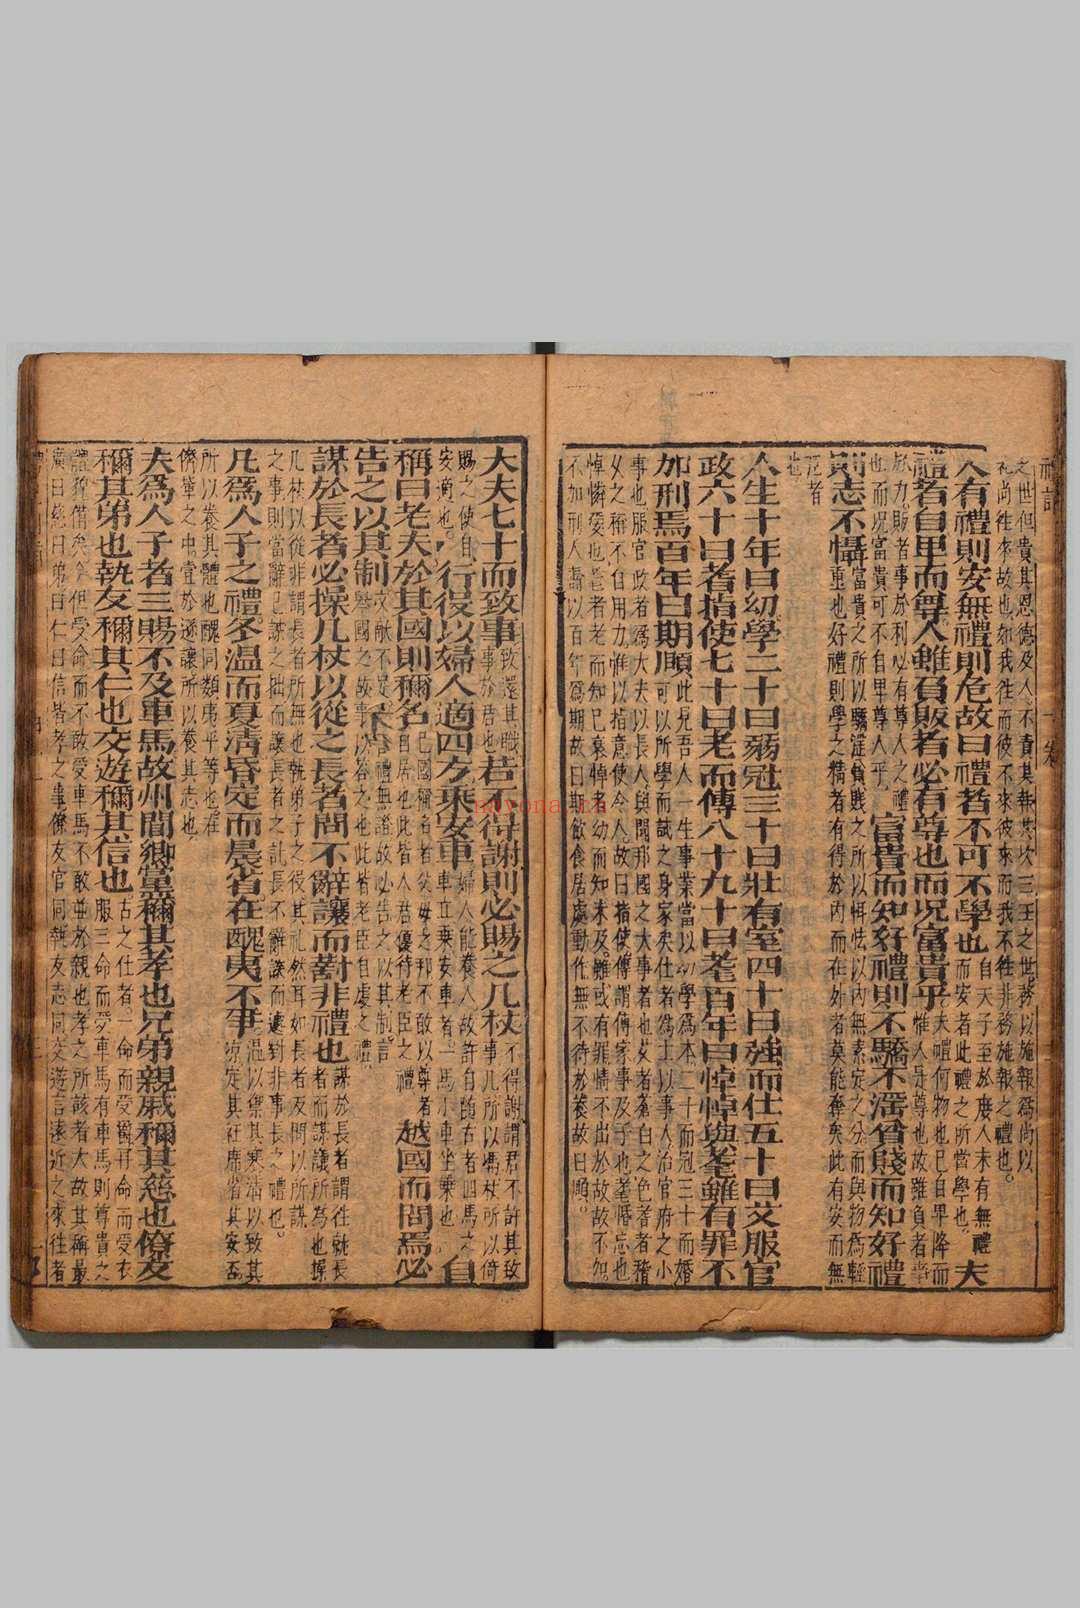 禮記
一卷
之世但貴其恩德及人不責其報其次三王之世務以施報爲尚以
礼尚往來故也如我往而彼不來彼來而我不往非務施報之禮也
人有禮則安無禮則危故曰禮者不可不學也自天子至於庶人未有無禮而安者此禮之所當學也夫
禮者自卑而尊人雖負販者必有尊也而況富貴乎
夫禮何物也已自卑降而
惟人是尊也故雖負者事於力販者事於利必有尊人之禮也而況富貴可不自卑尊人乎
富貴而知好禮則不驕不淫貧賤而知好禮
則志不懾富貴之所以驕淫貧賤之所以怯以内無素定之分而與物爲輕
重也好禮則學之精者有得於内而在外者莫能奪矣此有安而無
危者也
人生十年曰幼學二十曰弱冠三十曰壯有室四十曰強而仕五十曰艾服官
政六十曰耆指使七十曰老而傳八十九十曰耄百年曰悼悼與耄雖有罪不
加刑焉百年曰期頤此見吾人一生事業當以幼學爲本二十而冠三十而婚
可以所學而試之身家矣仕者爲士以事人治官府之小
事也服官政者爲大夫以長人與聞邦國之大事者也艾者蒼白之色耆者稽
父之稱不自用力惟以指意使令人故曰指使傳謂傳家事及子也耄惛忘也
悼憐愛也耄者老而知已衰悼者幼而知未及雖或有罪情不出於故故不加
不加刑人壽以百年爲期故曰期飲食居處動作無不待於養故曰頤
大夫七十而致事致還其職事於君也若不得謝則必賜之几杖不得謝謂君不許其致事几所以馮杖所以倚
賜之使自安適也行役以婦人適四方乘安車婦人能養人故許自隨古者四馬之車立乘安車者一馬小車坐乘也自
稱曰老夫於其國則稱名已國稱名者父母之邦不敢以尊者自居也此皆人君優待老臣之禮越國而問焉必
告之以其制文獻不足禮無證故必告之以其制言舉國之故事以答之也此皆老臣自處之禮
謀於長者必操几杖以從之長者問不辭讓而對非禮也謀於長者謂往就長者而謀議所為也操
几杖以從非謂長者所無也執弟子之役其礼然耳如長者及問以所謀
之事則當辭已之拙而讓長者之託長不辭讓而遽對非事長之禮也
凡爲人子之禮冬溫而夏凊昏定而晨省在醜夷不爭溫以禦其寒凊以致其涼定其衽席省其安否
所以養其體也醜同類夷平等也在
儕輩之中宜於遜讓所以養其志也
夫爲人子者三賜不及車馬故州閭鄉黨稱其孝也兄弟親戚稱其慈也僚友
稱其弟也執友稱其仁也交遊稱其信也古之仕者一命而受爵再命而受衣服三命而受車馬有車馬則尊貴之
體貌備矣今但受命而不敢受車馬不敢並於親也孝之所該者大故其稱最
廣曰慈曰弟曰仁曰信皆孝之事僚友官同執友志同交遊言遠近之來往者